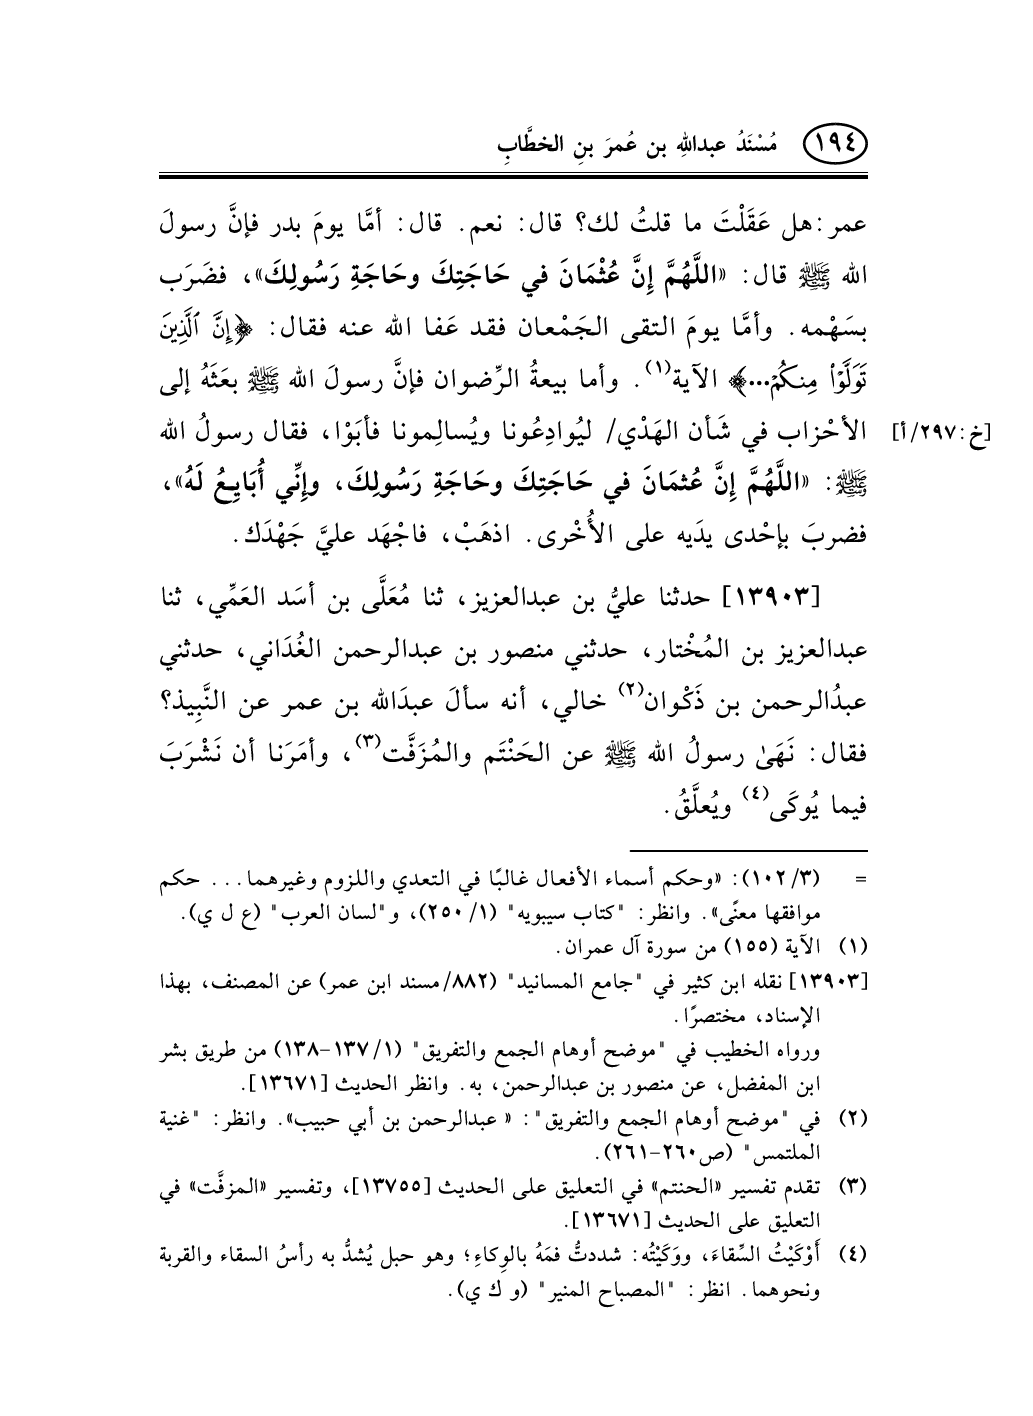 ١٩٤ مُسْنَدُ عبداللهِ بن عُمرَ بنِ الخطَّابِ
عمر:هل عَقَلْتَ ما قلتُ لك؟ قال: نعم. قال: أمَّا يومَ بدر فإنَّ رسولَ
الله ﷺ قال: «اللَّهُمَّ إِنَّ عُثْمَانَ في حَاجَتِكَ وحَاجَةِ رَسُولِكَ»، فضَرَب
بسَهْمه. وأمَّا يومَ التقى الجَمْعان فقد عَفا الله عنه فقال: ﴿إِنَّ ٱلَّذِينَ
تَوَلَّوۡاْ مِنكُمۡ...﴾ الآية(١). وأما بيعةُ الرِّضوان فإنَّ رسولَ الله ﷺ بعَثَهُ إلى
الأحْزاب في شَأن الهَدْي/ ليُوادِعُونا ويُسالِمونا فأبَوْا، فقال رسولُ الله [خ:٢٩٧/أ]
ﷺ: «اللَّهُمَّ إِنَّ عُثمَانَ في حَاجَتِكَ وحَاجَةِ رَسُولِكَ، وإِنِّي أُبَايِعُ لَهُ»،
فضربَ بإحْدى يدَيه على الأُخْرى. اذهَبْ، فاجْهَد عليَّ جَهْدَك.
[١٣٩٠٣] حدثنا عليُّ بن عبدالعزيز، ثنا مُعَلَّى بن أسَد العَمِّي، ثنا
عبدالعزيز بن المُخْتار، حدثني منصور بن عبدالرحمن الغُدَاني، حدثني
عبدُالرحمن بن ذَكْوان(٢) خالي، أنه سألَ عبدَالله بن عمر عن النَّبِيذ؟
فقال: نَهَىٰ رسولُ الله ﷺ عن الحَنْتَم والمُزَفَّت(٣)، وأمَرَنا أن نَشْرَبَ
فيما يُوكَى(٤) ويُعلَّقُ.
= (٣/ ١٠٢): «وحكم أسماء الأفعال غالبًا في التعدي واللزوم وغيرهما... حكم
موافقها معنًى». وانظر: "كتاب سيبويه" (١/ ٢٥٠)، و"لسان العرب" (ع ل ي).
(١) الآية (١٥٥) من سورة آل عمران.
[١٣٩٠٣] نقله ابن كثير في "جامع المسانيد" (٨٨٢/مسند ابن عمر) عن المصنف، بهذا
الإسناد، مختصرًا.
ورواه الخطيب في "موضح أوهام الجمع والتفريق" (١/ ١٣٧-١٣٨) من طريق بشر
ابن المفضل، عن منصور بن عبدالرحمن، به. وانظر الحديث [١٣٦٧١].
(٢) في "موضح أوهام الجمع والتفريق": « عبدالرحمن بن أبي حبيب». وانظر: "غنية
الملتمس" (ص٢٦٠-٢٦١).
(٣) تقدم تفسير «الحنتم» في التعليق على الحديث [١٣٧٥٥]، وتفسير «المزفَّت» في
التعليق على الحديث [١٣٦٧١].
(٤) أَوْكَيْتُ السِّقاءَ، ووَكَيْتُه: شددتُّ فمَهُ بالوِكاءِ؛ وهو حبل يُشدُّ به رأسُ السقاء والقربة
ونحوهما. انظر: "المصباح المنير" (و ك ي).